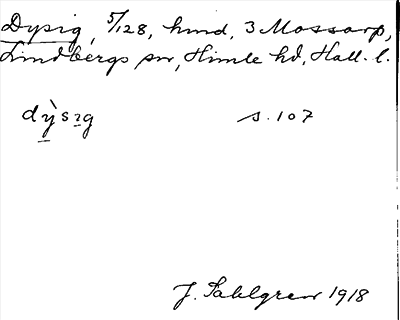 Dysig, 5/128, hmd, 3 Mossarp,
Lindbergs sn, Himle hd, Hall. l.
dỳsꞮg s. 107
J. Sahlgren 1918